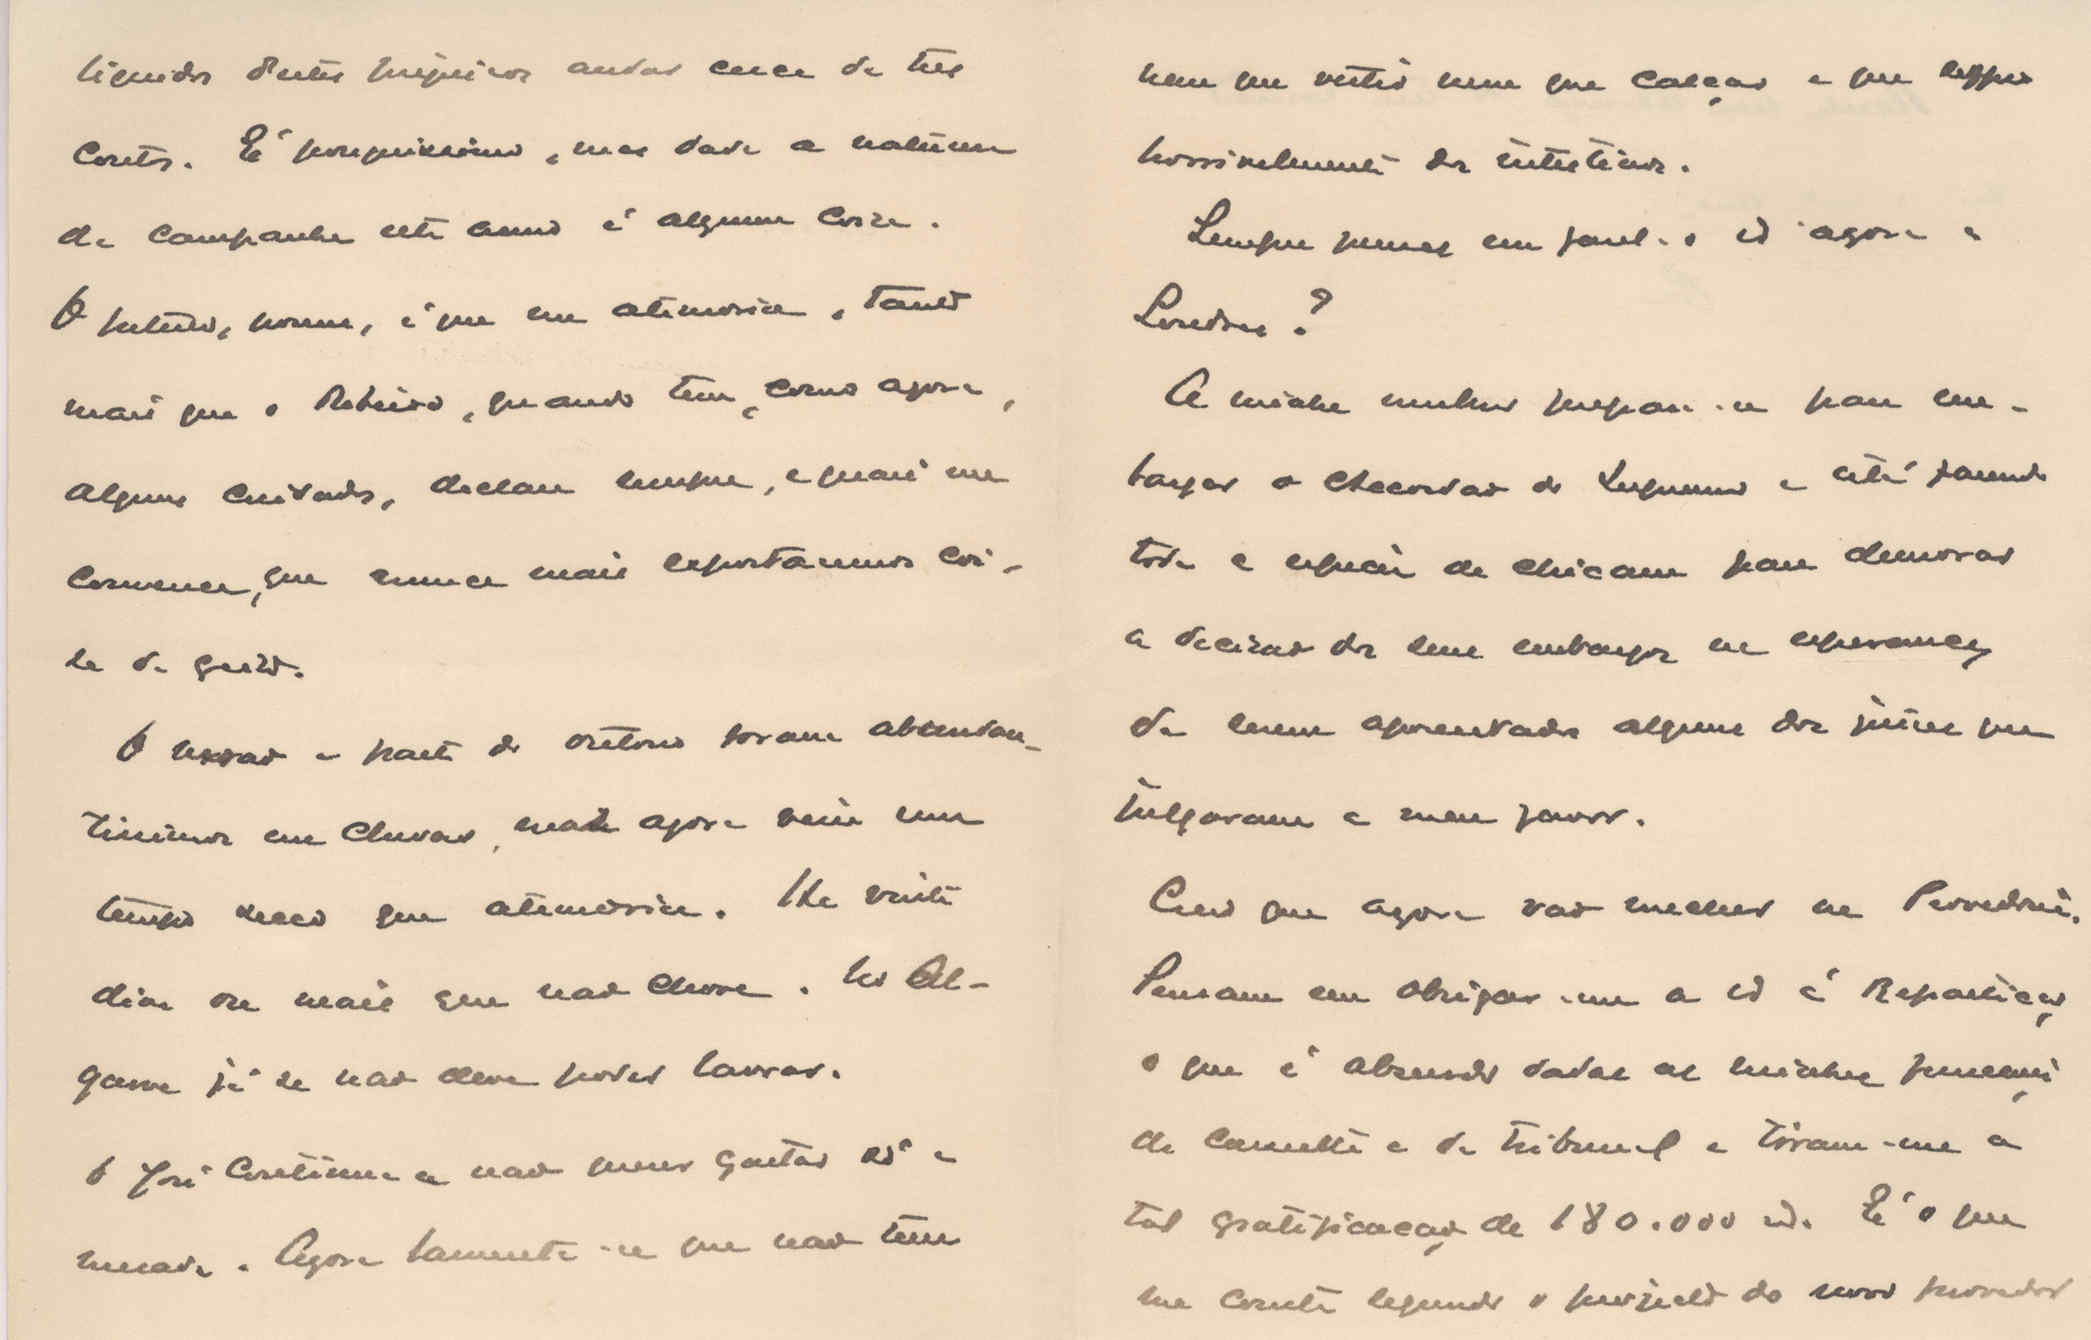 liquidos d'estes negocios andar cerca de tres
contos. É pouquissimo, mas dada a natureza
da campanha este anno é alguma coisa.
O futuro, porem, é que me atemorisa, tanto
mais que o Ribeiro, quando tem, como agora,
alguns cuidados, declara sempre, e quasi me
convence, que nunca mais exportaremos coi-
sa de geito.
O verão e parte do outono foram abundan-
tissimos em chuvas, mas agora veiu um
tempo secco que atemorisa. Ha vinte
dias ou mais que não chove. No Al-
garve já se não deve poder lavrar.
O José continua a não querer gastar só a
mesada. Agora lamenta-se que não tem
nem que vestir nem que calçar e que soffre
possivelmente dos intestinos.
Sempre pensas em fazel-o ir agora a
Londres?
A minha mulher prepara-se para em-
bargar o Accordão do Supremo e está fazendo
toda a especie de chicana para demorar
a decisão dos seus embargos na esperança
de serem aposentados alguns dos juizes que
julgaram a meu favor.
Creio que agora vão mecher na Provedoria.
Pensam em obrigar-me a ir á Repartição
o que é absurdo dadas as minhas funcções
de consulta e de tribunal e tiram-me a
tal gratificação de 180.000 rs. É o que
me consta segundo o projecto do novo provedor